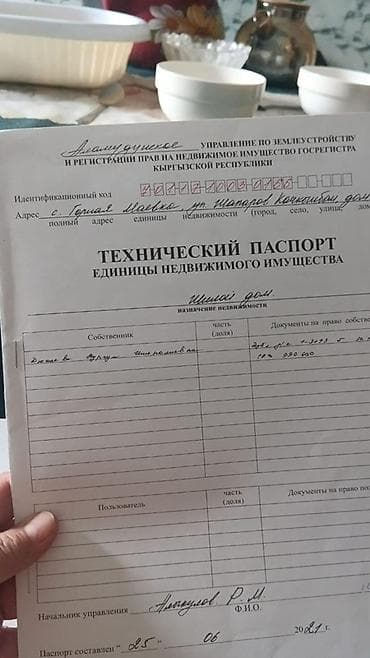 Аламудунское УПРАВЛЕНИЕ ПО ЗЕМЛЕУСТРОЙСТВУ
И РЕГИСТРАЦИИ ПРАВ НА НЕДВИЖИМОЕ ИМУЩЕСТВО ГОСРЕГИСТРА
КЫРГЫЗСКОЙ РЕСПУБЛИКИ
Идентификационный код
Адрес с. Горная Маевка, ул. Шапаров дом
полный адрес единицы недвижимости (город, село, улица, дом
ТЕХНИЧЕСКИЙ ПАСПОРТ
ЕДИНИЦЫ НЕДВИЖИМОГО ИМУЩЕСТВА
Жилой дом.
назначение недвижимости
Собственник
часть
(доля)
Документы на право собстве
Пользователь
часть
(доля)
Документы на право пол
Начальник управления Р. М.
Ф.И.О.
Паспорт составлен " 25 " 06 2021 г.